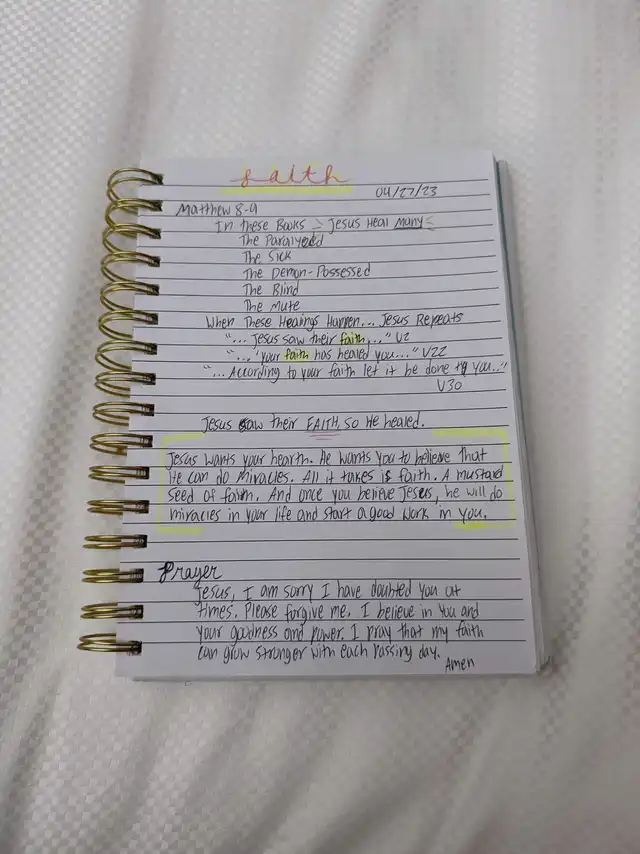 faith
04/27/23
Matthew 8-9
In these Books > Jesus Heal Many <
The Paralyzed
The Sick
The Demon-Possessed
The Blind
The Mute
When These Healings Happen... Jesus Repeats
"... Jesus saw their faith..." V2
"... 'your faith has healed you..." V22
"... According to your faith let it be done to you..."
V30
Jesus saw their FAITH, so He healed.
Jesus wants your hearth. He wants you to believe that
He can do miracles. All it takes is faith. A mustard
seed of faith. And once you believe Jesus, he will do
miracles in your life and start a good work in you.
Prayer
Jesus, I am sorry I have doubted you at
times. Please forgive me, I believe in You and
your goodness and power. I pray that my faith
can grow stronger with each passing day.
Amen